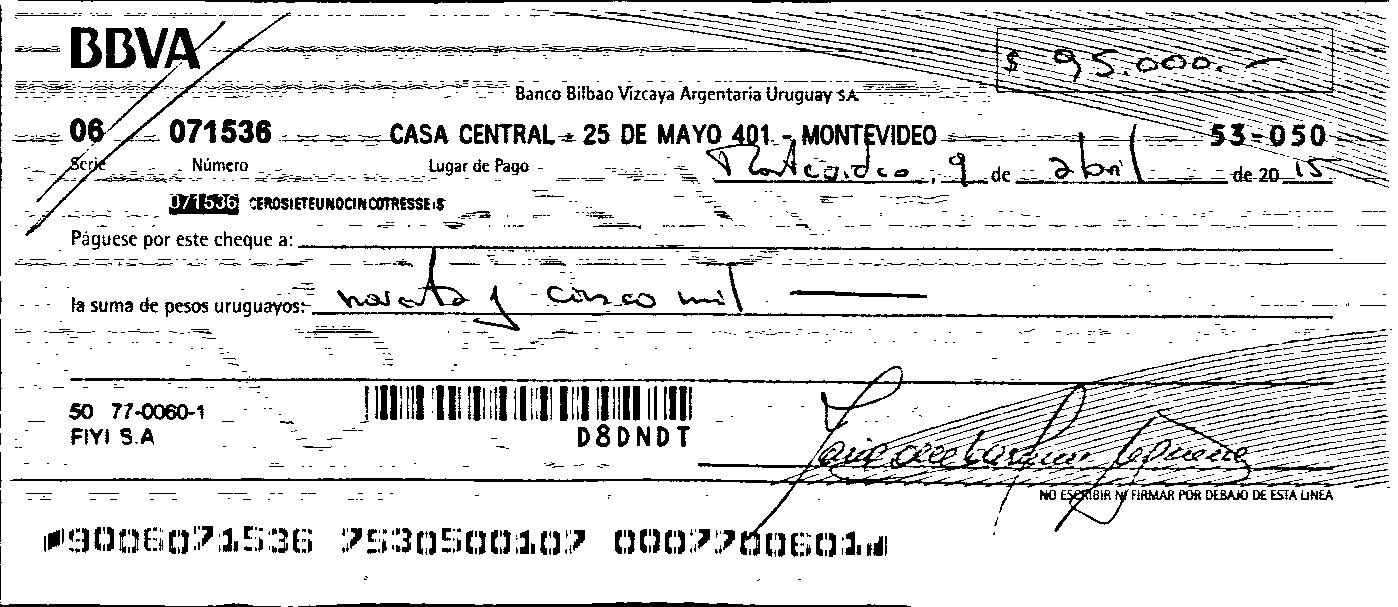 BBVA
$ 95.000.-
Banco Bilbao Vizcaya Argentaria Uruguay S.A.
06 071536 CASA CENTRAL - 25 DE MAYO 401 - MONTEVIDEO 53-050
Serie Número Lugar de Pago Montevideo, 9 de abril de 20 15
071536 CEROSIETEUNOCINCOTRESSEIS
Páguese por este cheque a:
la suma de pesos uruguayos: noventa y cinco mil
50 77-0060-1
FIYI S.A
D8DNDT
NO ESCRIBIR NI FIRMAR POR DEBAJO DE ESTA LINEA
9006071536 7530500107 0007700601